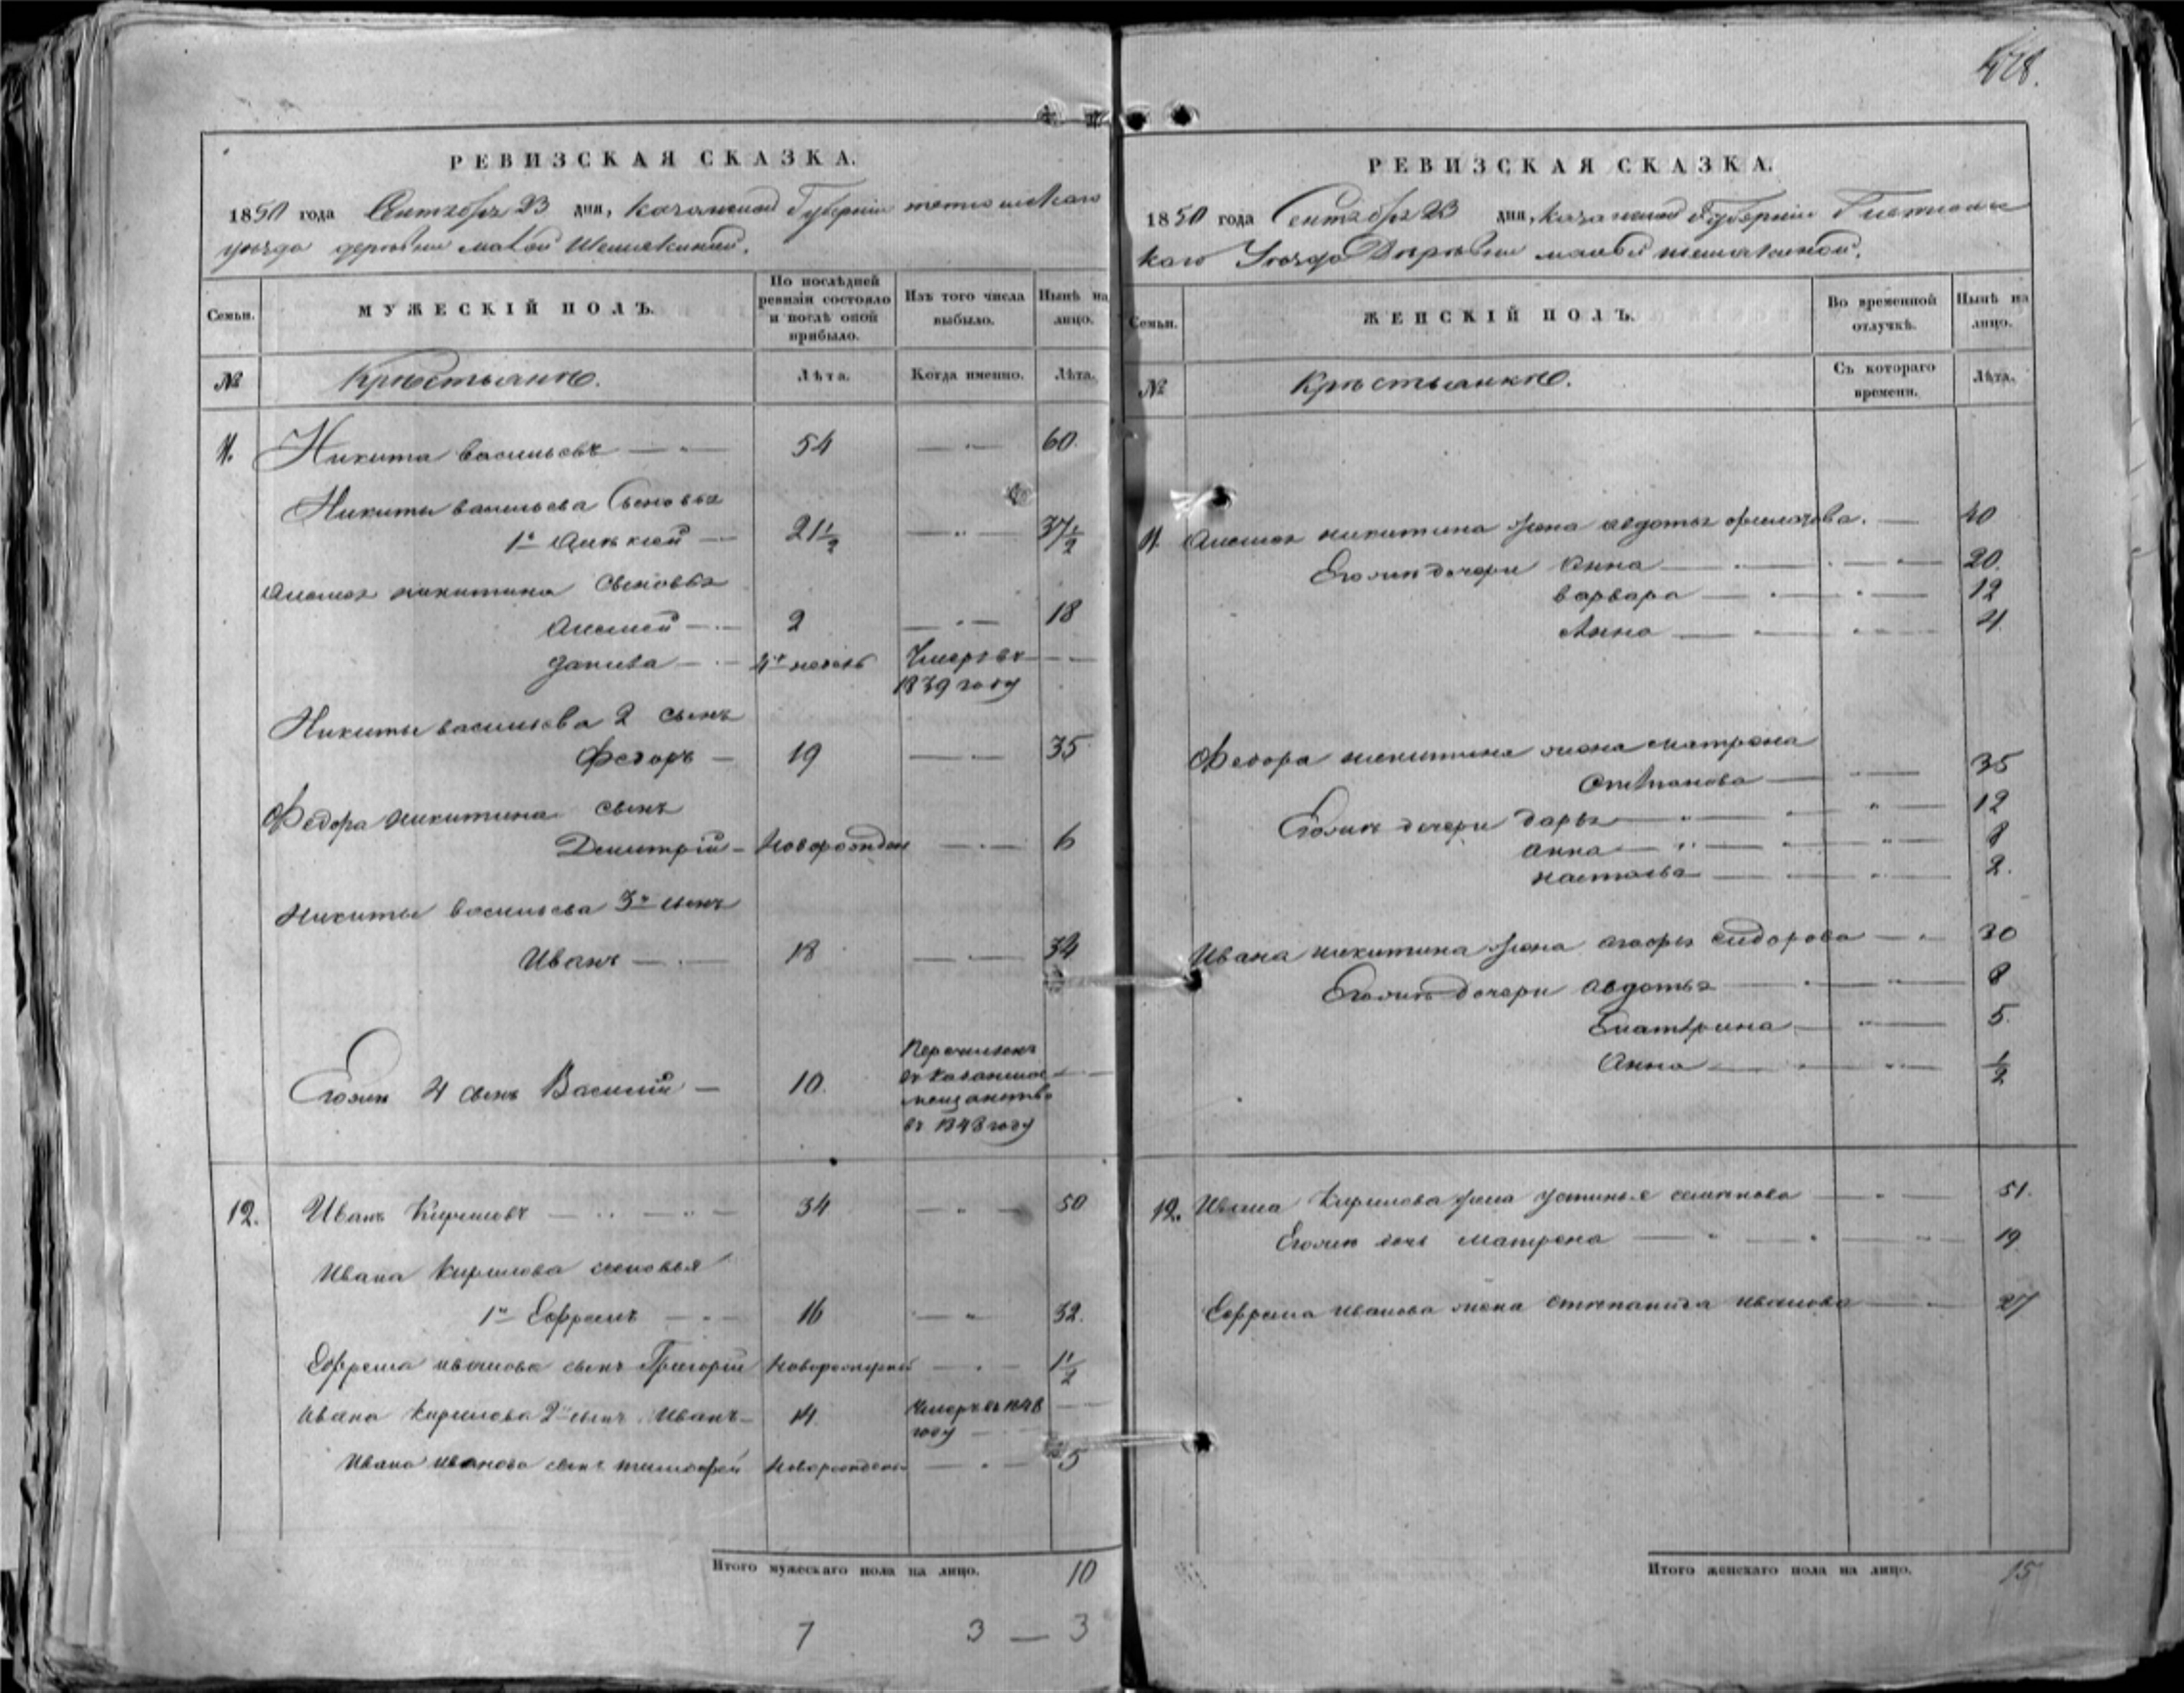 РЕВИЗСКАЯ СКАЗКА.
1850 года Сентября 23 дня, Казанской Губернии тетюшскаго
уезда деревни малой Шемякиной.
Семьи.
МУЖЕСКІЙ ПОЛЪ.
По послѣдней ревизіи состояло и послѣ оной прибыло.
Изъ того числа выбыло.
Нынѣ на лицо.
№
Крестьяне.
Лѣта.
Когда именно.
Лѣта.
11. Никита Васильевъ 54 60.
Никиты васильева Сыновья
1й Алексей 21 1/2 37 1/2
никитина Сыновья
2 18
данила недель Умеръ въ
1839 году
Никиты васильева 2 сынъ
Федоръ 19 35
Федора никитина сынъ
Дмитрій Новорожден 6
Никиты васильева 3й сынъ
Иванъ 18 34
Егоже 4 сынъ Василій 10. Перечисленъ
въ Казанское
мещанство
въ 1848 году
12. Иванъ Кириловъ 34 50
Ивана Кирилова сыновья
1й Ефремъ 16 32.
Ефрема иванова сынъ Григорій Новорожденый 1 1/2
Ивана Кирилова 2й сынъ Иванъ 14. Умеръ въ 1848
году
Ивана иванова сынъ тимофей Новорожденъ 5
Итого мужескаго пола на лицо. 10
7 3 — 3
РЕВИЗСКАЯ СКАЗКА.
1850 года Сентября 23 дня, казанской Губернии Тетюшс
каго Уезда Деревни малой шемякиной.
Семьи.
ЖЕНСКІЙ ПОЛЪ.
Во временной отлучкѣ.
Нынѣ на лицо.
№
Крестьянке.
Съ котораго времени.
Лѣта.
11 никитина жена авдотья 40
Егоже дочери Анна 20.
варвара 12
Анна 4
Федора никитина жена матрена
Степанова 35
Егоже дочери дарья 12
анна 8
настасья 2.
Ивана никитина жена агафья сидорова 30
Егоже дочери авдотья 8
Екатерина 5.
Анна 1/2
12. Ивана Кирилова жена устинья семенова 51.
Егоже дочь матрена 19
Ефрема иванова жена степанида иванова 27
Итого женскаго пола на лицо. 15